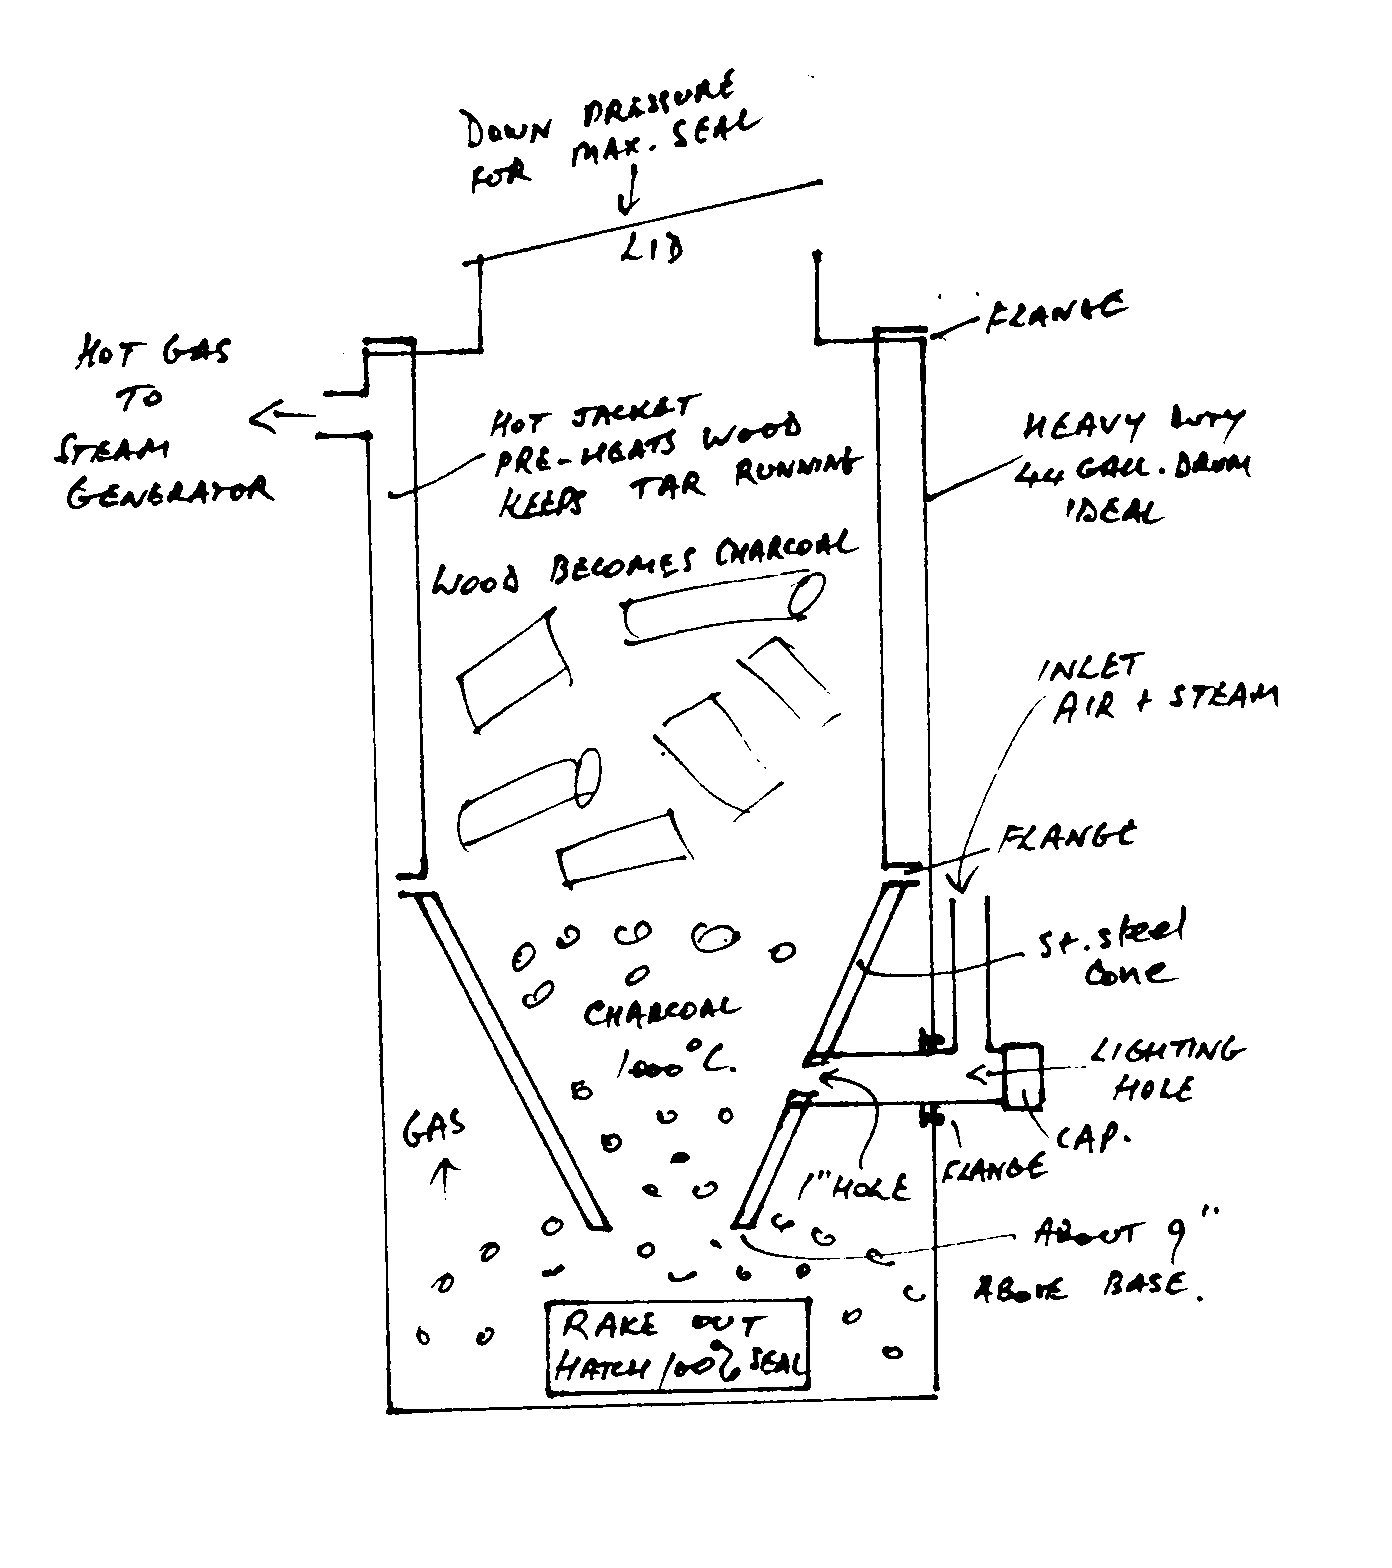 DOWN PRESSURE
FOR MAX. SEAL
LID
FLANGE
HOT GAS
TO
STEAM
GENERATOR
HOT JACKET
PRE-HEATS WOOD
KEEPS TAR RUNNING
HEAVY DUTY
44 GALL. DRUM
IDEAL
WOOD BECOMES CHARCOAL
INLET
AIR + STEAM
FLANGE
St. Steel
Cone
CHARCOAL
1000°C.
LIGHTING
HOLE
CAP.
GAS
1" HOLE
FLANGE
ABOUT 9"
ABOVE BASE.
RAKE OUT
HATCH 100% SEAL